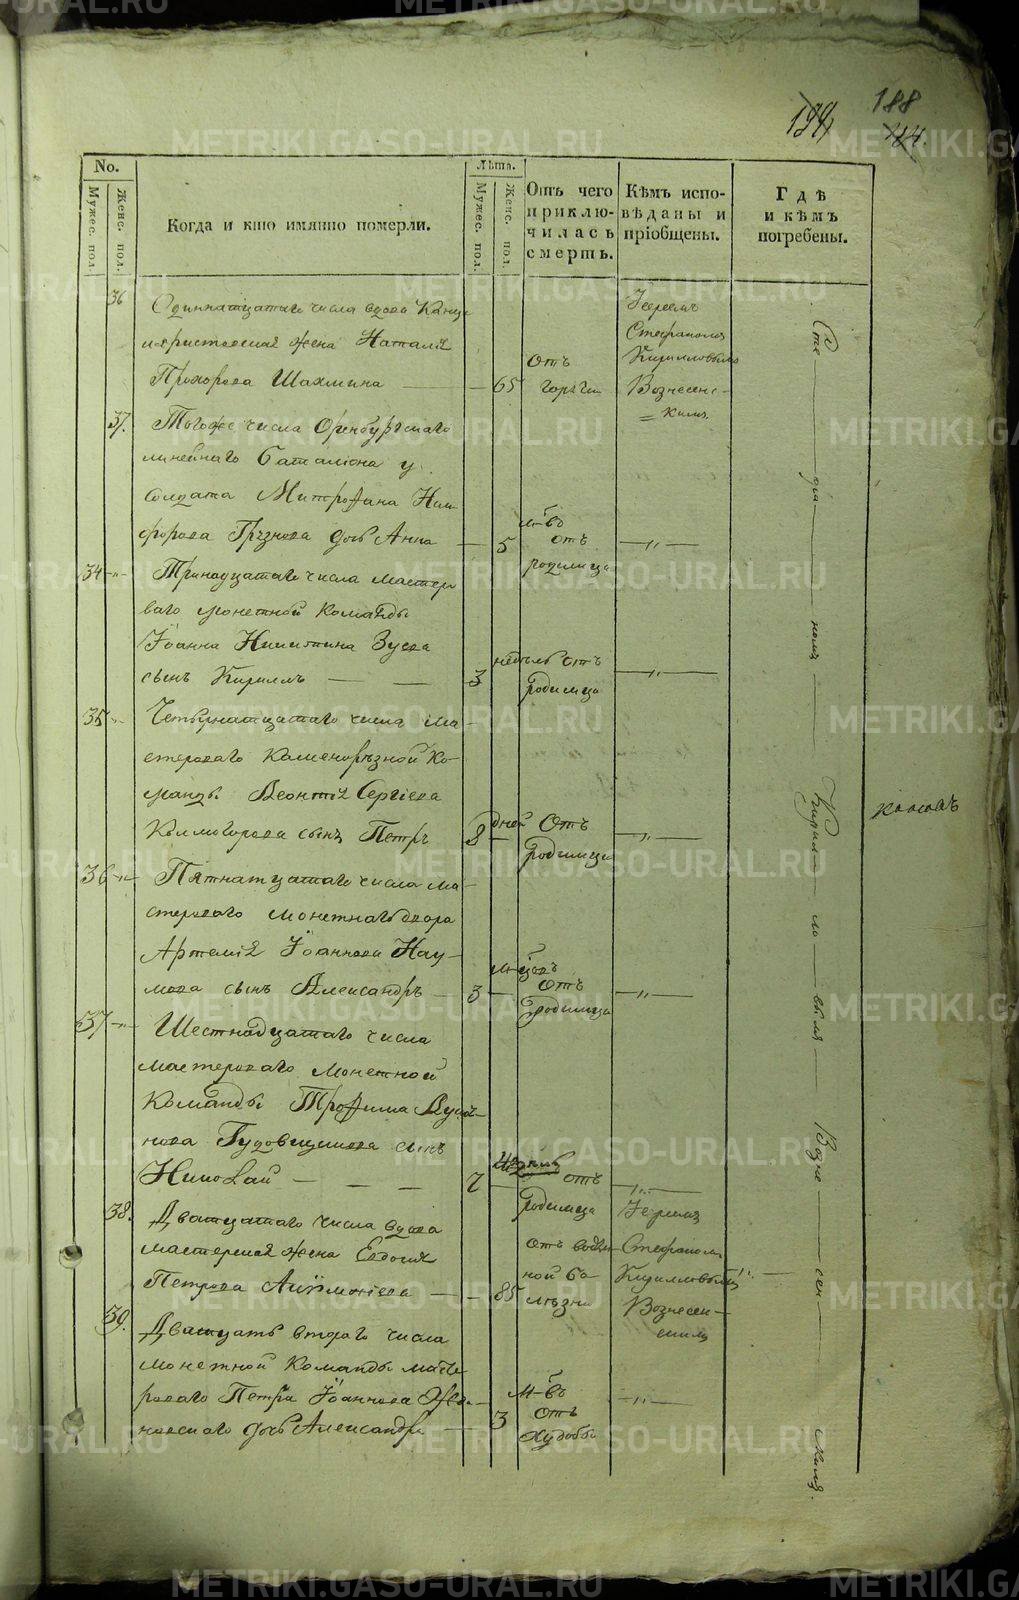 188
194
184.
No.
Мужес. пол.
Женс. пол.
Когда и кто имянно померли.
Лѣта.
Мужес. пол.
Женс. пол.
Отъ чего приклю-чилась смерть.
Кѣмъ испо-вѣданы и пріобщены.
Гдѣ и кѣмъ погребены.
36
Одиннатцатаго числа вдова Канце
ляристовская жена Наталія
Прохорова Шахмина
65
отъ
горячки
Іереемъ
Стефаномъ
Кирилловымъ
Вознесенс-
кимъ
37.
Тогоже числа Оренбургскаго
линейнаго баталіона
солдата Митрофана Ники
форова Грязнова дочь Анна
5
м-въ
отъ
родимца
—„—
34 -„-
Тринадцатаго числа мастеро
ваго монетной команды
Іоанна Никитина Зуева
сынъ Кириллъ
3
недель отъ
родимца
—„—
35 -„-
Четырнатцатаго числа ма-
стероваго Каменорѣзной ко-
манды Леонтія Сергіева
Колмогорова сынъ Петръ
8
дней отъ
родимца
—„—
36 -„-
Пятнатцатаго числа ма-
стероваго монетнаго двора
Артемія Іоаннова Нау-
мова сынъ Александръ
3
м-цовъ
отъ
родимца
—„—
37 -„-
Шестнадцатаго числа
мастероваго монетной
команды Трофима
нова Гудовщикова сынъ
Николай
2
отъ
родимца
—„—
38.
Дватцатаго числа вдова
мастерская жена Евдокія
Петрова
85
отъ водян-
ной бо-
лѣзни
Іереемъ
Стефаномъ
Кирилловымъ
Вознесен-
скимъ
39.
Дватцать втораго числа
монетной команды масте
роваго Петра Іоаннова
новскаго дочь Александра
3
м-въ
отъ
худобы
—„—
Сте фа номъ Кирил ло вымъ Возне сен скимъ.
METRIKI.GASO-URAL.RU